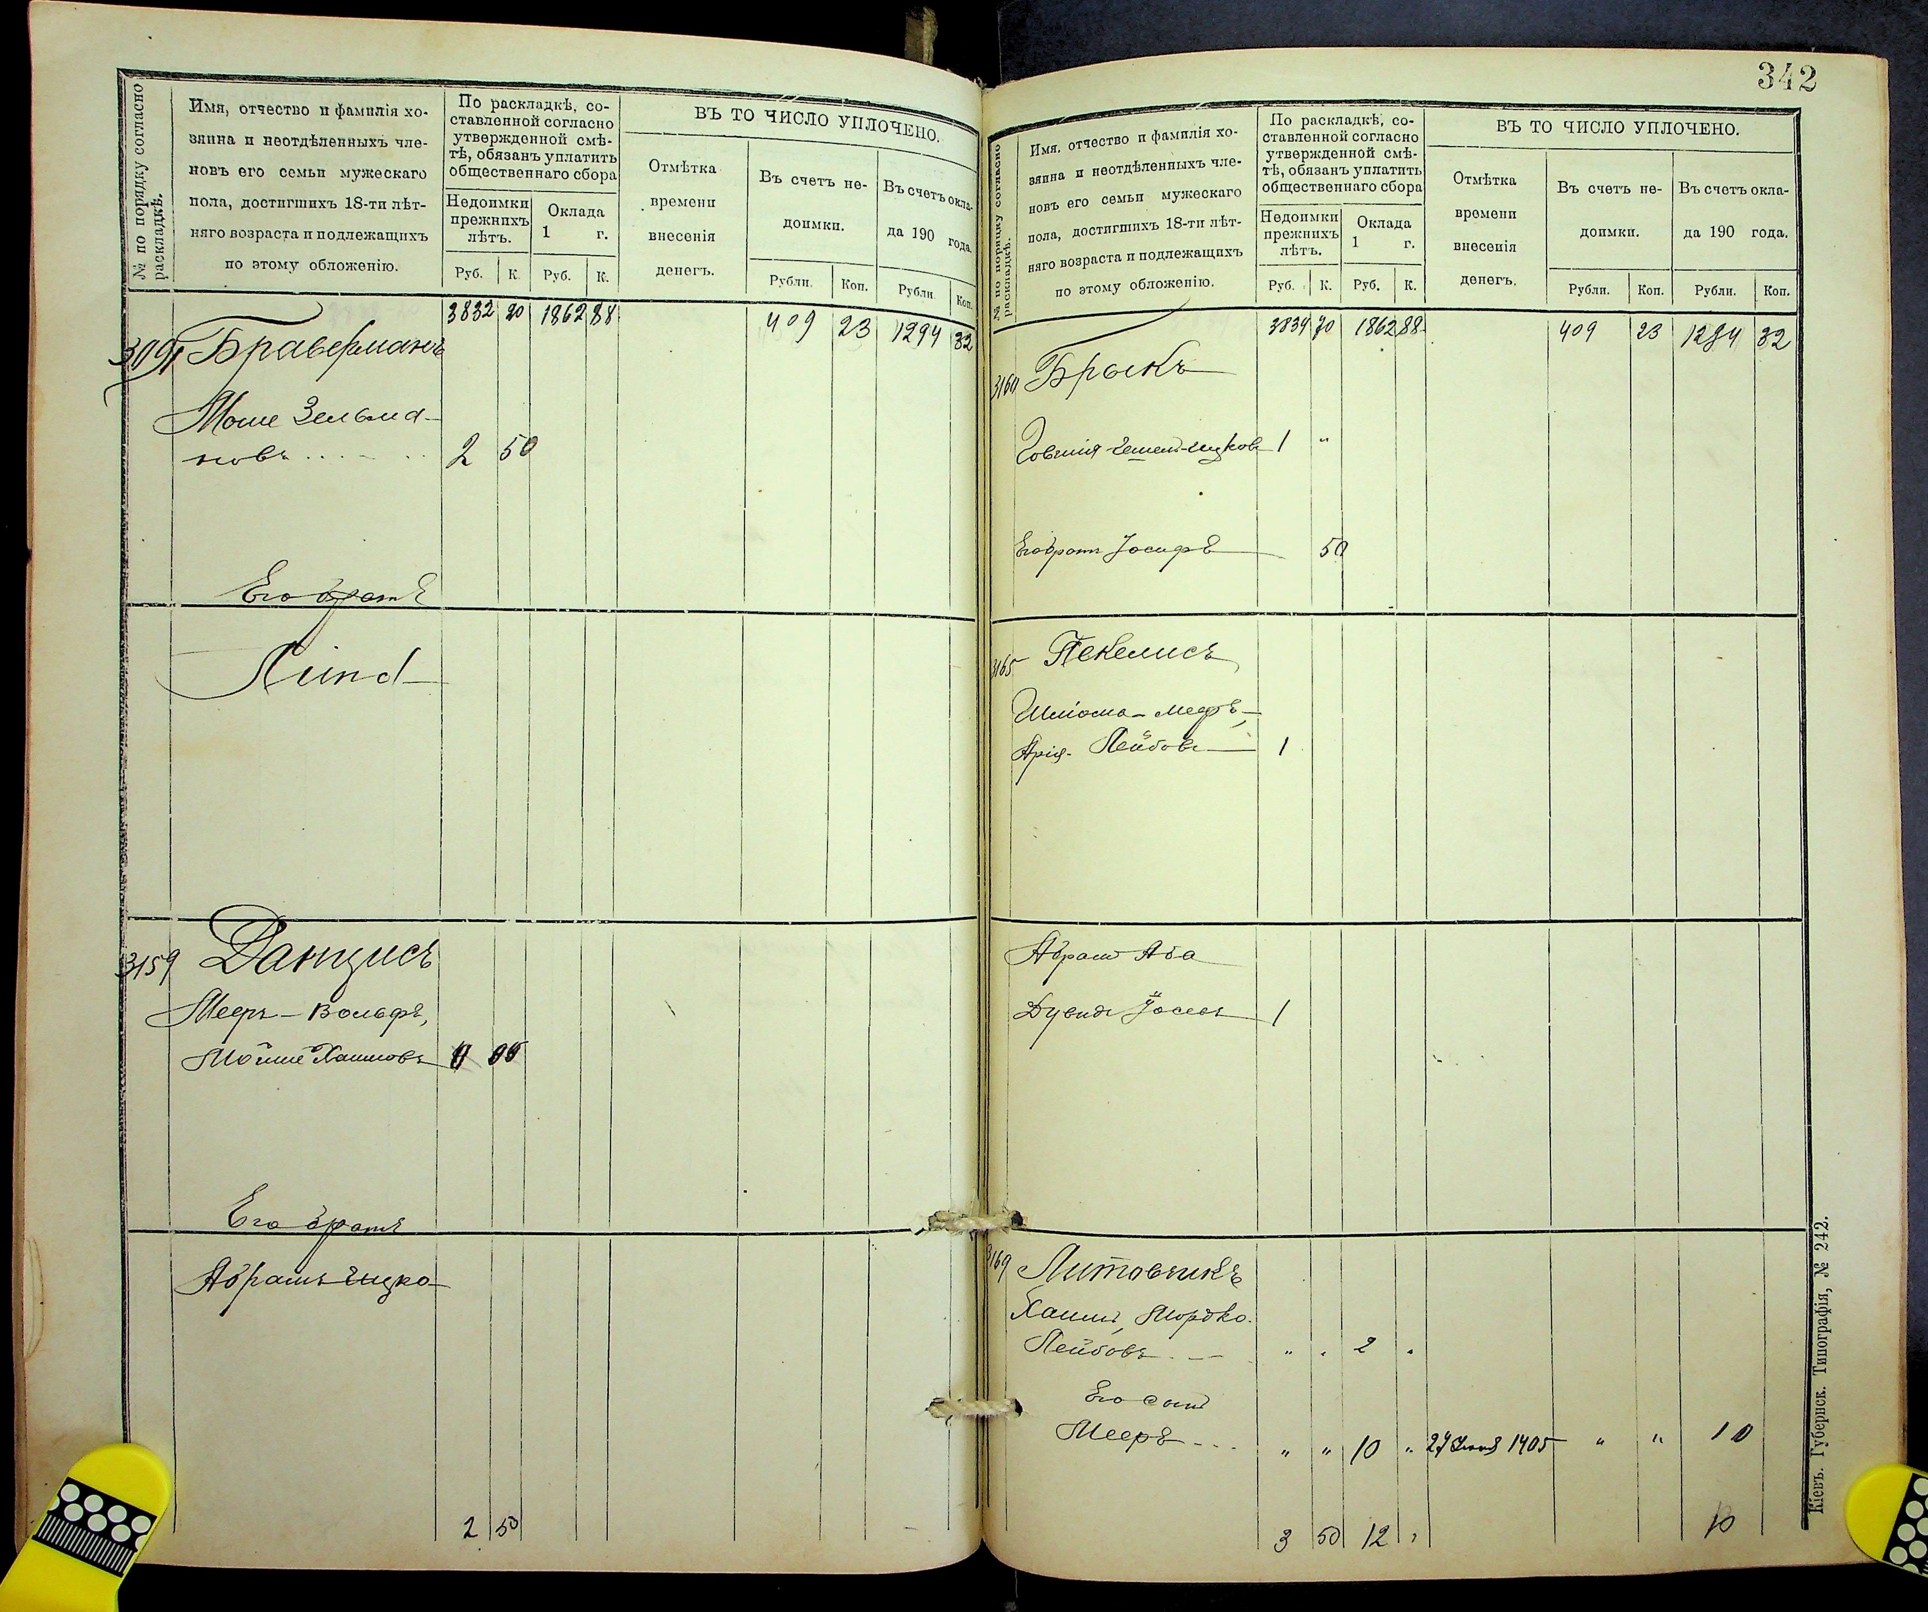 № по порядку согласно
раскладкѣ.
Имя, отчество и фамилія хо-
зяина и неотдѣленныхъ чле-
новъ его семьи мужескаго
пола, достигшихъ 18-ти лѣт-
няго возраста и подлежащихъ
по этому обложенію.
По раскладкѣ, со-
ставленной согласно
утвержденной смѣ-
тѣ, обязанъ уплатить
общественнаго сбора
Недоимки
прежнихъ
лѣтъ.
Оклада
1 г.
Руб. К. Руб. К.
ВЪ ТО ЧИСЛО УПЛОЧЕНО.
Отмѣтка
времени
внесенія
денегъ.
Въ счетъ не-
доимки.
Въ счетъ окла-
да 190 года.
Рубли. Коп. Рубли Коп.
3832 20 1862 88 409 23 1294 32
3091 Браверманъ
Моше Зельма-
новъ 2 50
Его братъ
3159 Данцисъ
Мееръ-Вольфъ,
Мойше Хаимовъ
Его братъ
Абрамъ-Ицко
2 50
342
№ по порядку согласно
раскладкѣ.
Имя, отчество и фамилія хо-
зяина и неотдѣленныхъ чле-
новъ его семьи мужескаго
пола, достигшихъ 18-ти лѣт-
няго возраста и подлежащихъ
по этому обложенію.
По раскладкѣ, со-
ставленной согласно
утвержденной смѣ-
тѣ, обязанъ уплатить
общественнаго сбора
Недоимки
прежнихъ
лѣтъ.
Оклада
1 г.
Руб. К. Руб. К.
ВЪ ТО ЧИСЛО УПЛОЧЕНО.
Отмѣтка
времени
внесенія
денегъ.
Въ счетъ не-
доимки.
Въ счетъ окла-
да 190 года.
Рубли. Коп. Рубли. Коп.
3834 70 1862 88 409 23 1284 32
3160 Брыкъ
1 "
Его братъ Іосифъ 50
3165 Пекелисъ
Шлиома-Мееръ-
Арія-Лейбовъ 1
Абрамъ Аба
Дувидъ 1
3169 Литовчикъ
Хаимъ, Мордко-
Лейбовъ " " 2 "
Его сынъ
Мееръ " " 10 " 27 1905 " " 10
3 50 12 " 10
Кіевъ. Губернск. Типографія, № 242.